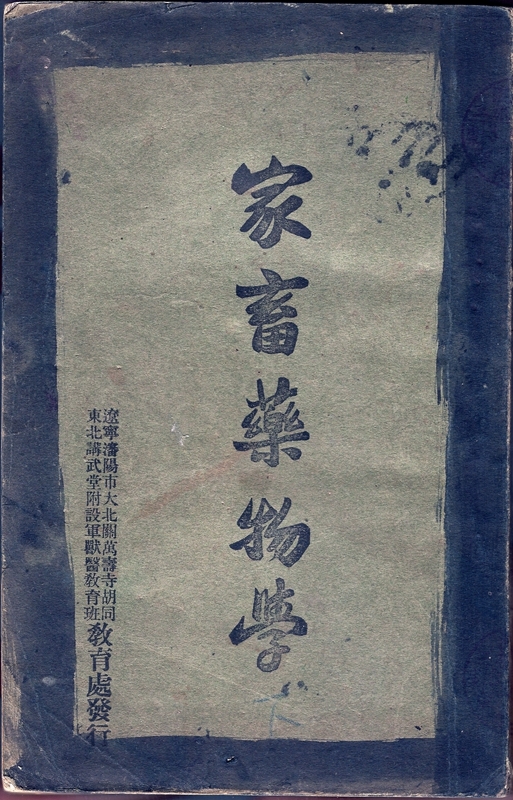 家畜藥物學
下
遼寧瀋陽市大北關萬壽寺胡同
東北講武堂附設軍獸醫教育班
教育處發行